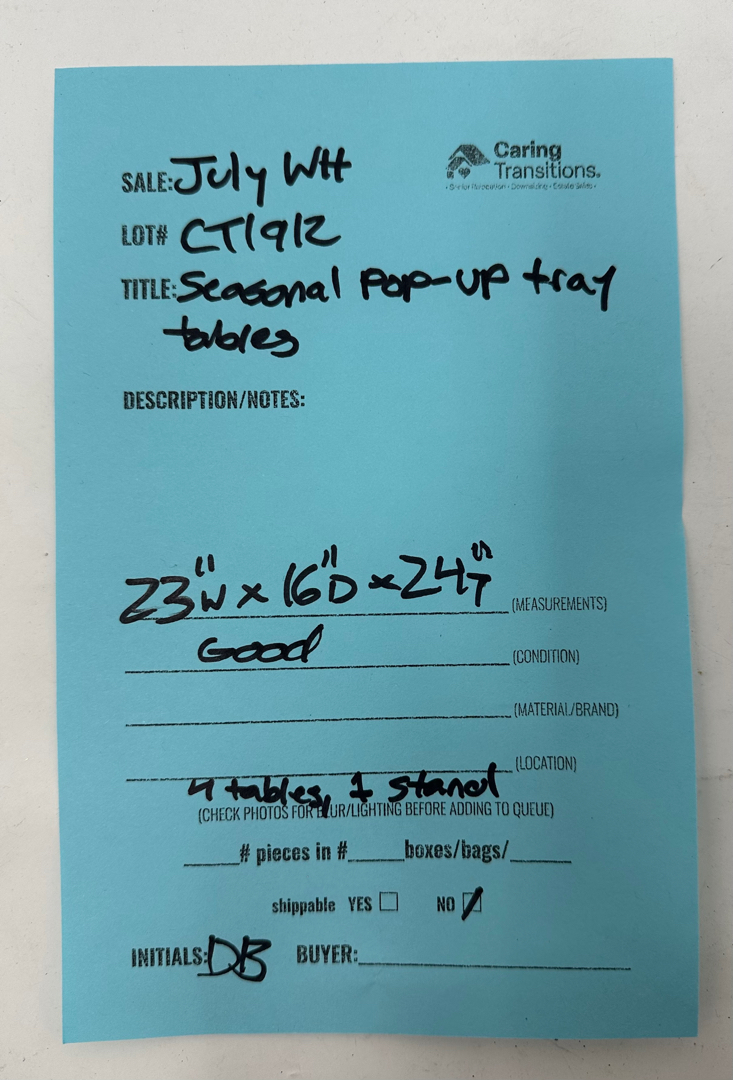 Caring
Transitions®
• Senior Relocation • Downsizing • Estate Sales •
SALE: July WH
LOT# CT1912
TITLE: Seasonal pop-up tray
tables
DESCRIPTION/NOTES:
23"W x 16"D x 24"T (MEASUREMENTS)
Good (CONDITION)
(MATERIAL/BRAND)
(LOCATION)
4 tables, 1 stand
(CHECK PHOTOS FOR BLUR/LIGHTING BEFORE ADDING TO QUEUE)
# pieces in # boxes/bags/
shippable YES NO
INITIALS: DB BUYER: